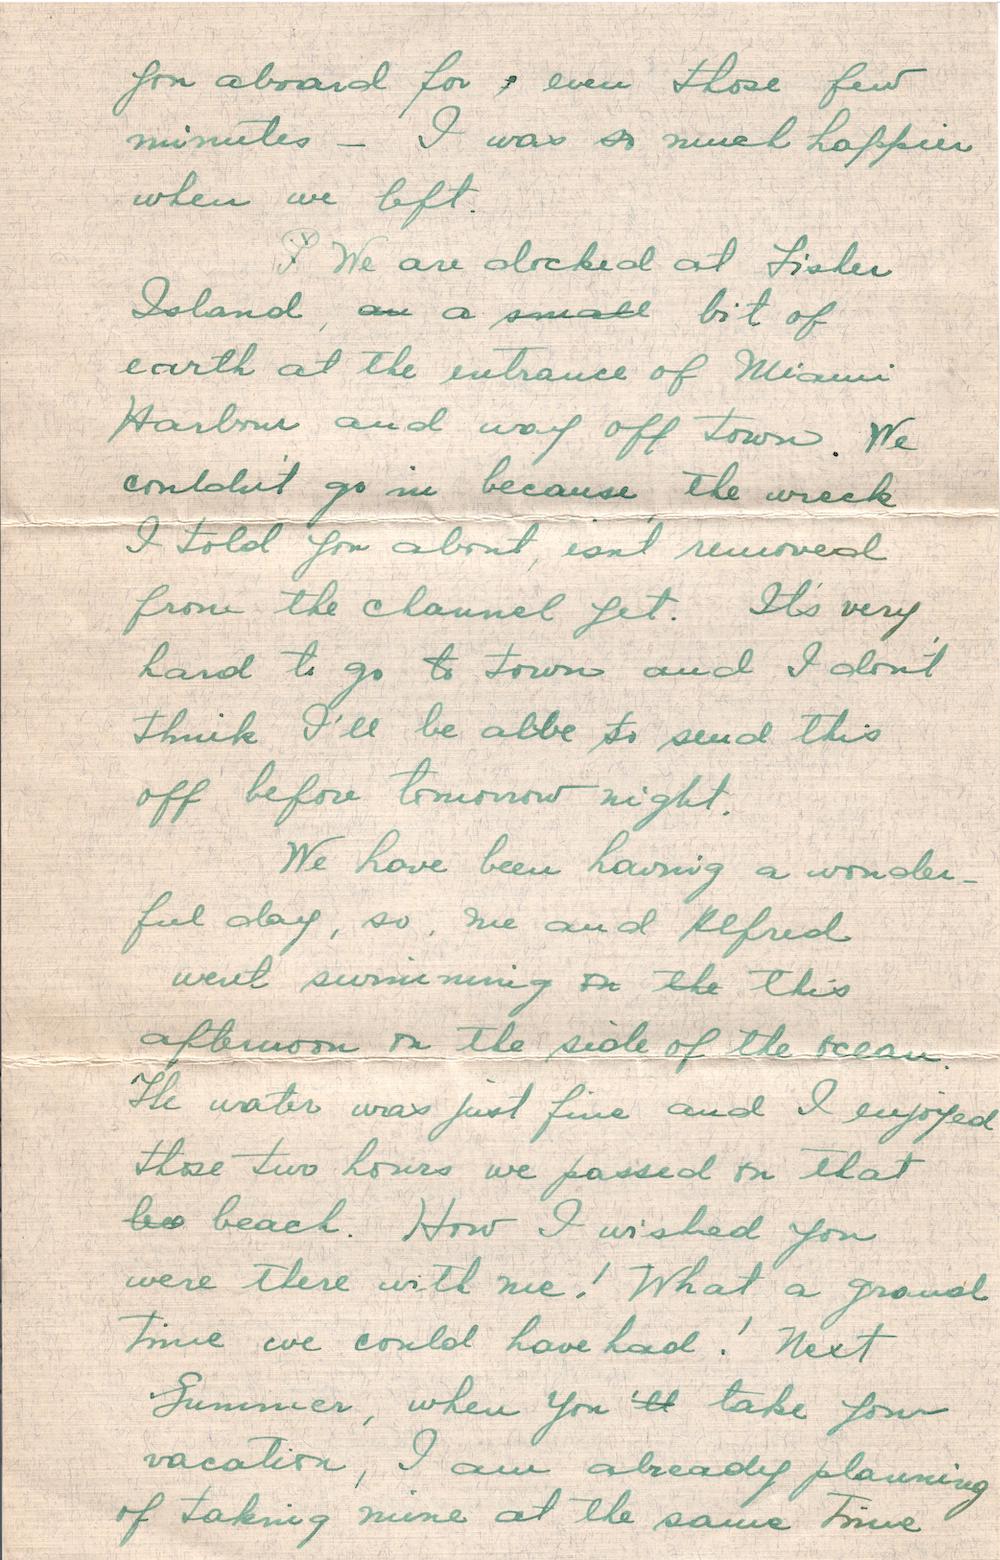 you aboard for, even those few
minutes – I was so much happier
when we left.
We are docked at Fisher
Island, an a small bit of
earth at the entrance of Miami
Harbour and way off town. We
couldn't go in because the wreck
I told you about, isn't removed
from the channel yet. It's very
hard to go to town and I don't
think I'll be able to send this
off before tomorrow night.
We have been having a wonder-
ful day, so, me and Alfred
went swimming on the this
afternoon on the side of the ocean.
The water was just fine and I enjoyed
those two hours we passed on that
beo beach. How I wished you
were there with me! What a grand
time we could have had! Next
Summer, when you'll take your
vacation, I am already planning
of taking mine at the same time